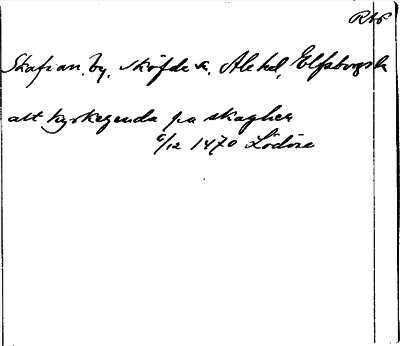 RAP
Skafian, by, Sköfde s., Ale hd, Elfsborgs l.
att kyrkegenda pa skaghen
6/12 1470 Lödöse